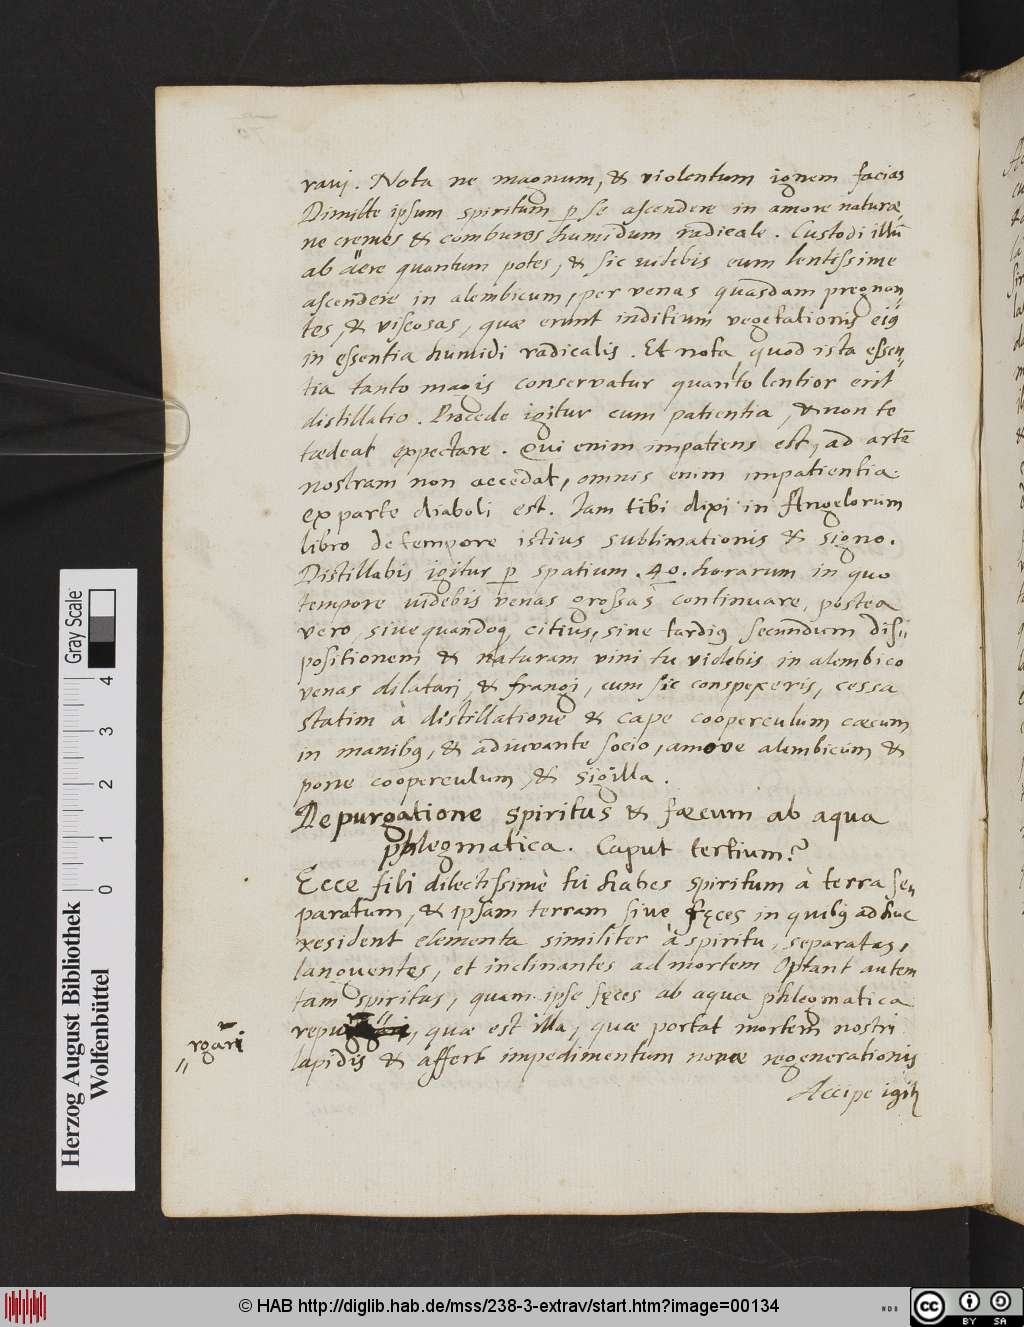 ravi. Nota ne magnum, & violentum ignem facias
Dimitte ipsum spiritum p se ascendere in amore naturæ,
ne cremes & combures humidum radicale. Custodi illũ
ab aëre quantum potes, & sic videbis eum lentissime
ascendere in alembicum, per venas quasdam pregnan„
tes, & viscosas, quæ erunt inditium vegetationis eiꝰ
in essentia humidi radicalis. Et nota quod ista essen„
tia tanto magis conservatur quanto lentior erit
distillatio. Procede igitur cum patientia, & non te
tædeat expectare. Qui enim impatiens est, ad artẽ
nostram non accedat, omnis enim impatientia
ex parte diaboli est. Iam tibi dixi in Angelorum
libro de tempore istius sublimationis & signo.
Distillabis igitur p spatium .40. horarum in quo
tempore videbis venas grossas continuare, postea
vero, sive quandoq, citius, sive tardiꝰ secundum dis„
positionem & naturam vini tu videbis in alembico
venas dilatari, & frangi, cum sic conspexeris, cessa
statim à distillatione & cape cooperculum cæcum
in manibꝰ, & adiuvante socio, amove alembicum &
pone cooperculum, & sigilla.
De purgatione spiritus & fæcum ab aqua
phlegmatica. Caput tertium.
Ecce fili dilectissime tu habes spiritum à terra se„
paratum, & ipsam terram sive fęces in quibꝰ adhuc
resident elementa similiter à spiritu, separatas,
languentes, et inclinantes ad mortem Optant autem
tam spiritus, quam ipse fęces ab aqua phlegmatica
repu , quæ est illa, quæ portat mortem nostri
„ rgari
lapidis & affert impedimentum novæ regenerationis
Accipe igit
Gray Scale
0 1 2 3 4
Herzog August Bibliothek
Wolfenbüttel
© HAB http://diglib.hab.de/mss/238-3-extrav/start.htm?image=00134
cc BY SA